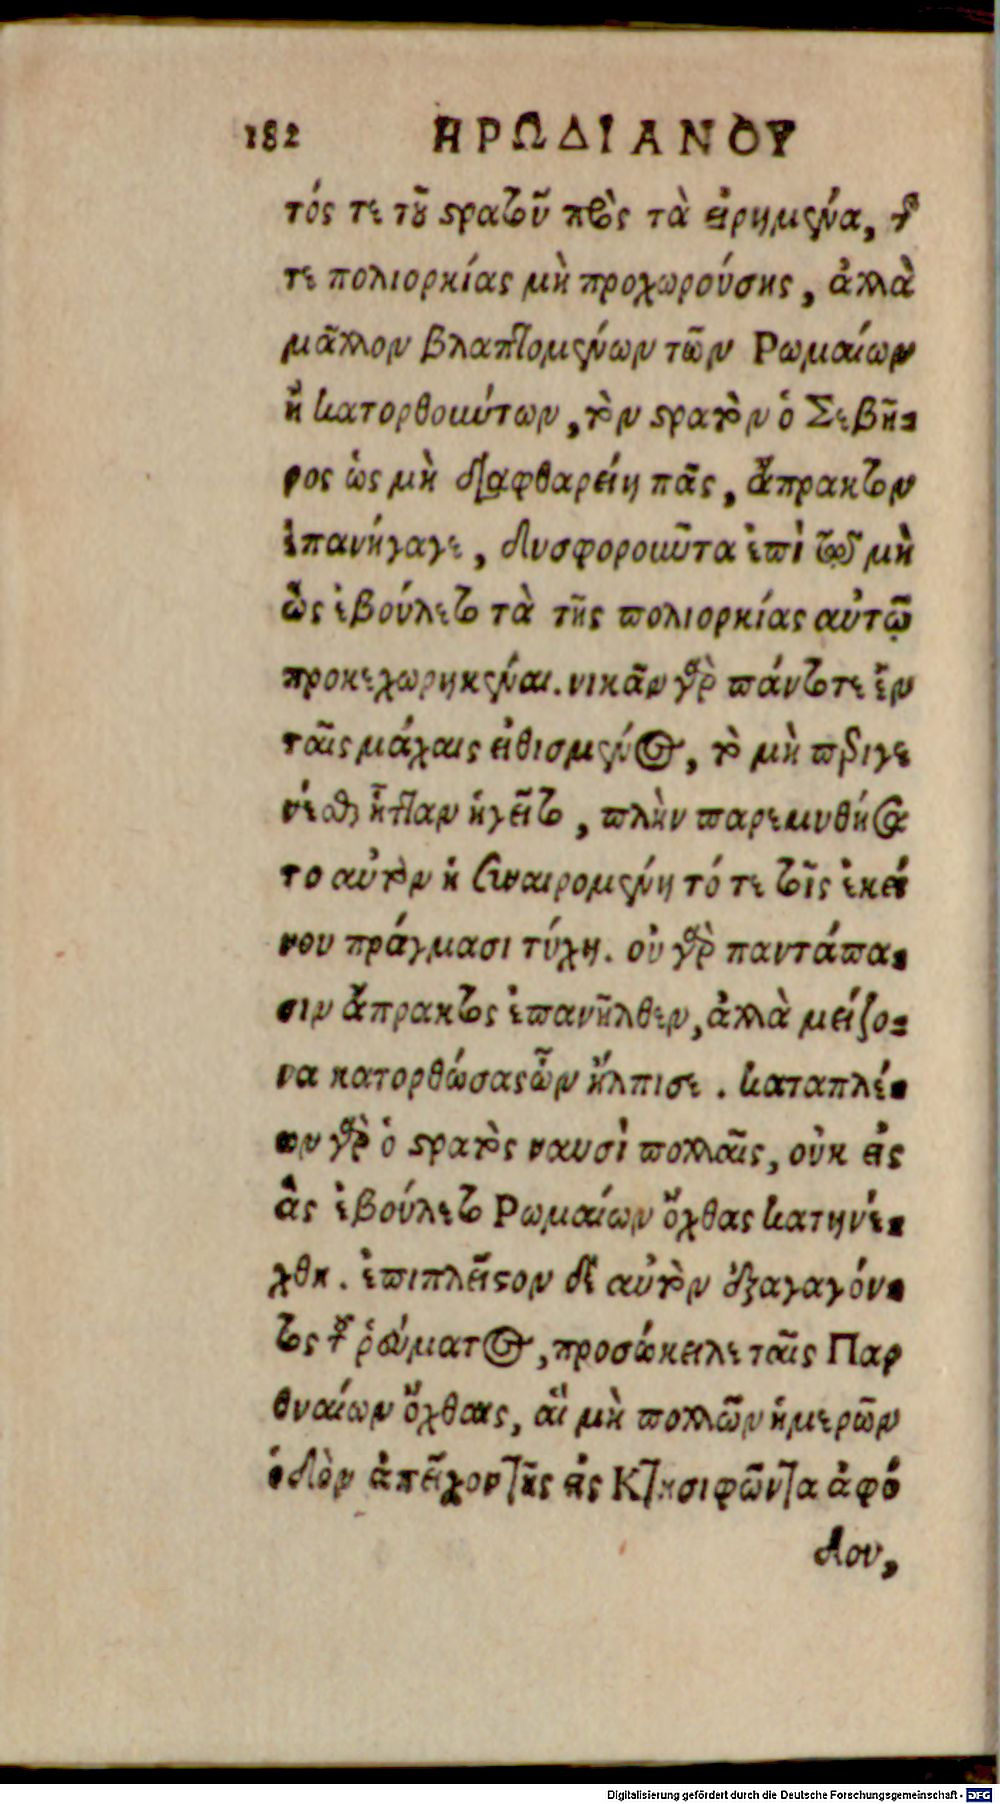 182 ΗΡΩΔΙΑΝΟΥ
τός τε τοῦ στρατοῦ πρὸς τὰ εἰρημένα, τῆς
τε πολιορκίας μὴ προχωρούσης, ἀλλὰ
μᾶλλον βλαπτομένων τῶν Ρωμαίων
ἢ κατορθούντων, τὸν στρατὸν ὁ Σεβῆ-
ρος ὡς μὴ διαφθαρείη πᾶς, ἄπρακτον
ἐπανήγαγε, δυσφοροῦντα ἐπὶ τῷ μὴ
ὡς ἐβούλετο τὰ τῆς πολιορκίας αὐτῷ
προκεχωρηκέναι. νικᾶν γὰρ πάντοτε ἐν
ταῖς μάχαις εἰθισμένος, τὸ μὴ περιγε
νέσθαι ἧτταν ἡγεῖτο, πλὴν παρεμυθήσα
το αὐτὸν ἡ συναιρομένη τότε τοῖς ἐκεί
νου πράγμασι τύχη. οὐ γὰρ παντάπα-
σιν ἄπρακτος ἐπανῆλθεν, ἀλλὰ μείζο-
να κατορθώσας ὧν ἤλπισε. καταπλέ-
ων γὰρ ὁ στρατὸς ναυσὶ πολλαῖς, οὐκ εἰς
ἃς ἐβούλετο Ρωμαίων ὄχθας κατηνέ-
χθη. ἐπιπλεῖστον δὲ αὐτὸν ἐξαγαγόν-
τος τοῦ ῥεύματος, προσώκειλε ταῖς Παρ
θυαίων ὄχθαις, αἳ μὴ πολλῶν ἡμερῶν
ὁδὸν ἀπεῖχον τῆς εἰς Κτησιφῶντα ἀφό
δου,
Digitalisierung gefördert durch die Deutsche Forschungsgemeinschaft - DFG